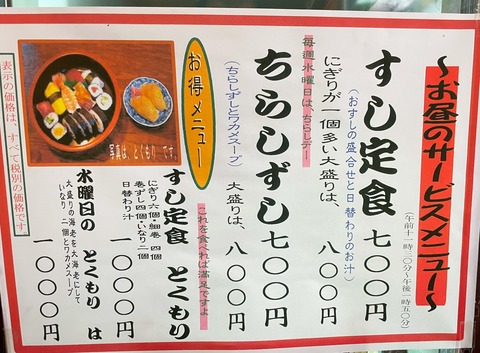 ～お昼のサービスメニュー～
(午前十一時三〇分～午後一時五〇分)
すし定食 七〇〇円
(おすしの盛合せと日替わりのお汁)
にぎりが一個多い大盛りは、 八〇〇円
毎週水曜日は、ちらしデー
ちらしずし 七〇〇円
(ちらしずしとワカメスープ) 大盛りは、 八〇〇円
お得メニュー
これを食べれば満足ですよ
すし定食 とくもり
にぎり六個・細巻 四個
巻ずし四個・いなり二個
日替わり汁
一〇〇〇円
水曜日の とくもり は
大盛りの海老を大海老にして
いなり 二個とワカメスープ
一〇〇〇円
写真は、とくもり です。
表示の価格は、すべて税別の価格です